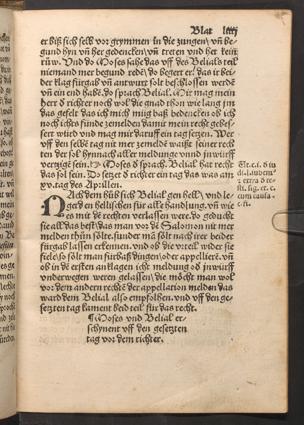 Blat lxxxj
er biß sich selb vor grymmen in die zungen/ vñ be-
gund hyn vñ her gedencken/ vñ treten vnd het kein
rũw. Vnd do Moses sahe das vff des Belials teil
niemand mer begund redē/ do begert er/ das ir bei-
der klag fürgab vñ antwurt solt beschlossen werdē
vñ ein end habē. do sprach Belial. Mir mag mein
herr d̄ richter noch wol die gnad thon wie lang jm
das gefelt das ich mich müg baß bedencken ob ich
noch ichts fünde zemelden damit mein recht gebes-
sert würd vnd mag mir daruff ein tag setzen. Wer
vff den selbē tag nit mer zemeldē waißt seiner rech-
ten der sol hynnach aller meldung vnd inwürff
verzigē sein. Moses d̄ sprach. Belial hat recht
das sol sein. Do setzet d̄ richter ein tag das was am
xv. tag des Aprillen.
NAch dem hůb sich Belial gen hell/ vnd le-
get den hellischen für alle handlung. vñ wie
es mit dē rechten verlassen were. do geduchtē
sie all das best/ das man vor dē Salomon nit mer
melden thün sölte. sunder mā sölt nach irer beider
fürgab lassen erkennen. vnd ob die vrteil wider sie
fiele/ so sölt man fürbaß dingen/ oder appellierē. vñ
ob in d̄ ersten antlagen icht meldung od̄ inwürff
vnderwegen weren gelassen/ die möcht man wol
vor dem andern rechtē der appellation melden das
ward dem Belial also empfolhen. vnd vff den ge-
setzten tag kament beid teil für das recht.
¶ Moses vnd Belial er-
schynent vff den gesetzten
tag vor dem richter.